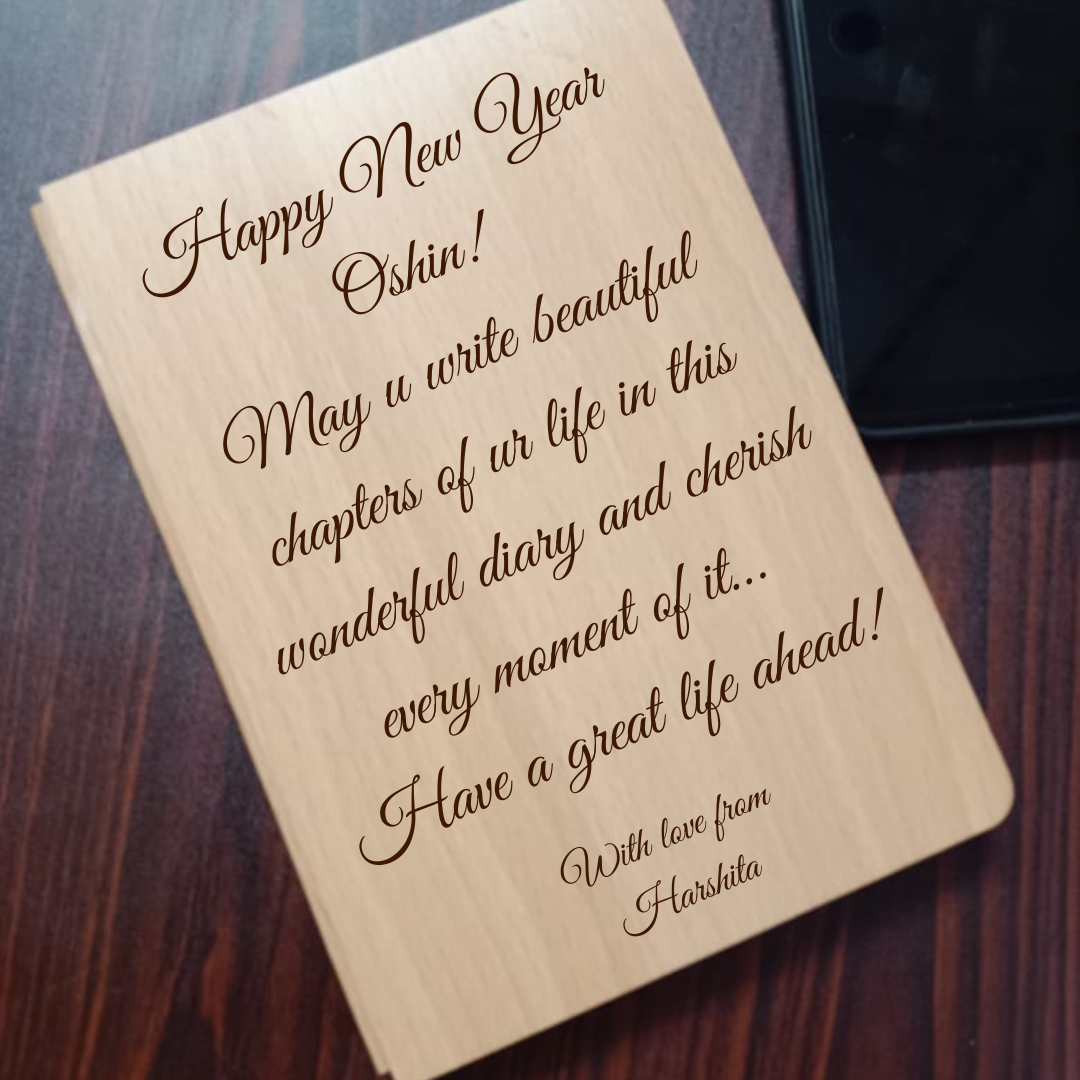 Happy New Year
Oshin!
May u write beautiful
chapters of ur life in this
wonderful diary and cherish
every moment of it...
Have a great life ahead!
With love from
Harshita